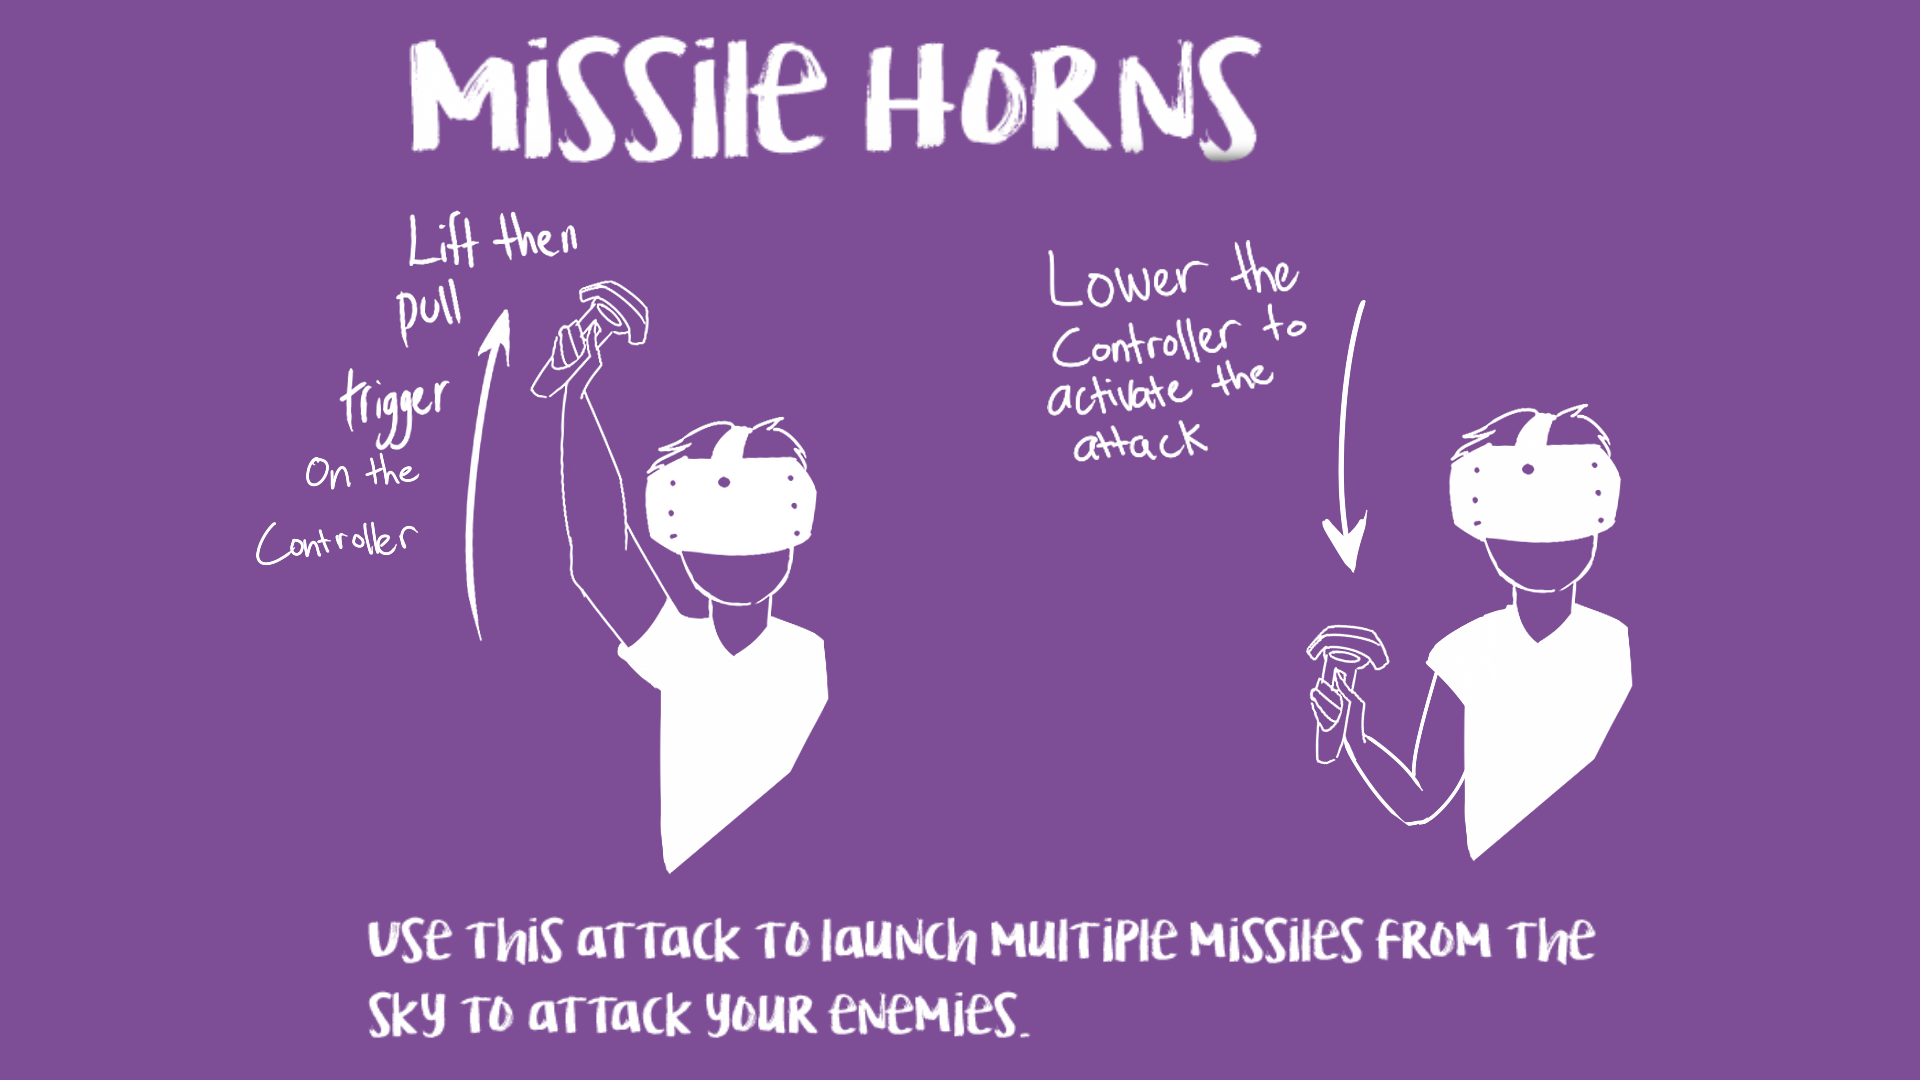 MiSSile HORNS
Lift then
pull
trigger
On the
Controller
Lower the
Controller to
activate the
attack
USe THiS aTTacK TO launch MulTiPle MiSSileS FROM The
SKY TO aTTacK YOUR eNeMieS.